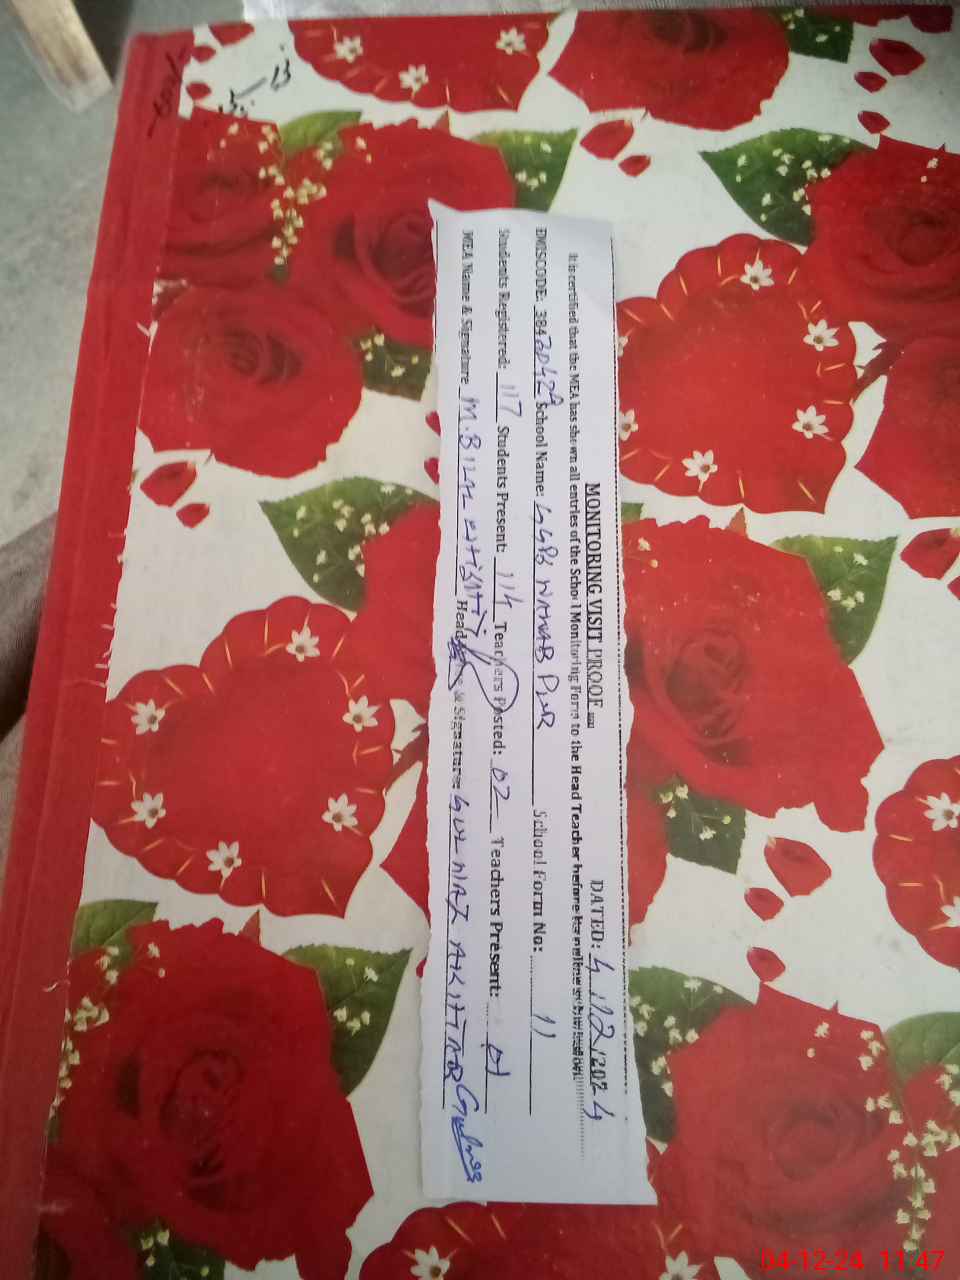 MONITORING VISIT PROOF DATED: 4/12/2024
It is certified that the MEA has shown all entries of the School Monitoring Form to the Head Teacher before
EMISCODE: 38420429 School Name: GGPS NAWAB PUR School Form No: 11
Students Registered: 117 Students Present: 114 Teachers Posted: 02 Teachers Present: 01
MEA Name & Signature M. BILAL CHISHTI Head & Signature: GUL NAZ AKHTAR Gulnaz
04-12-24 11:47